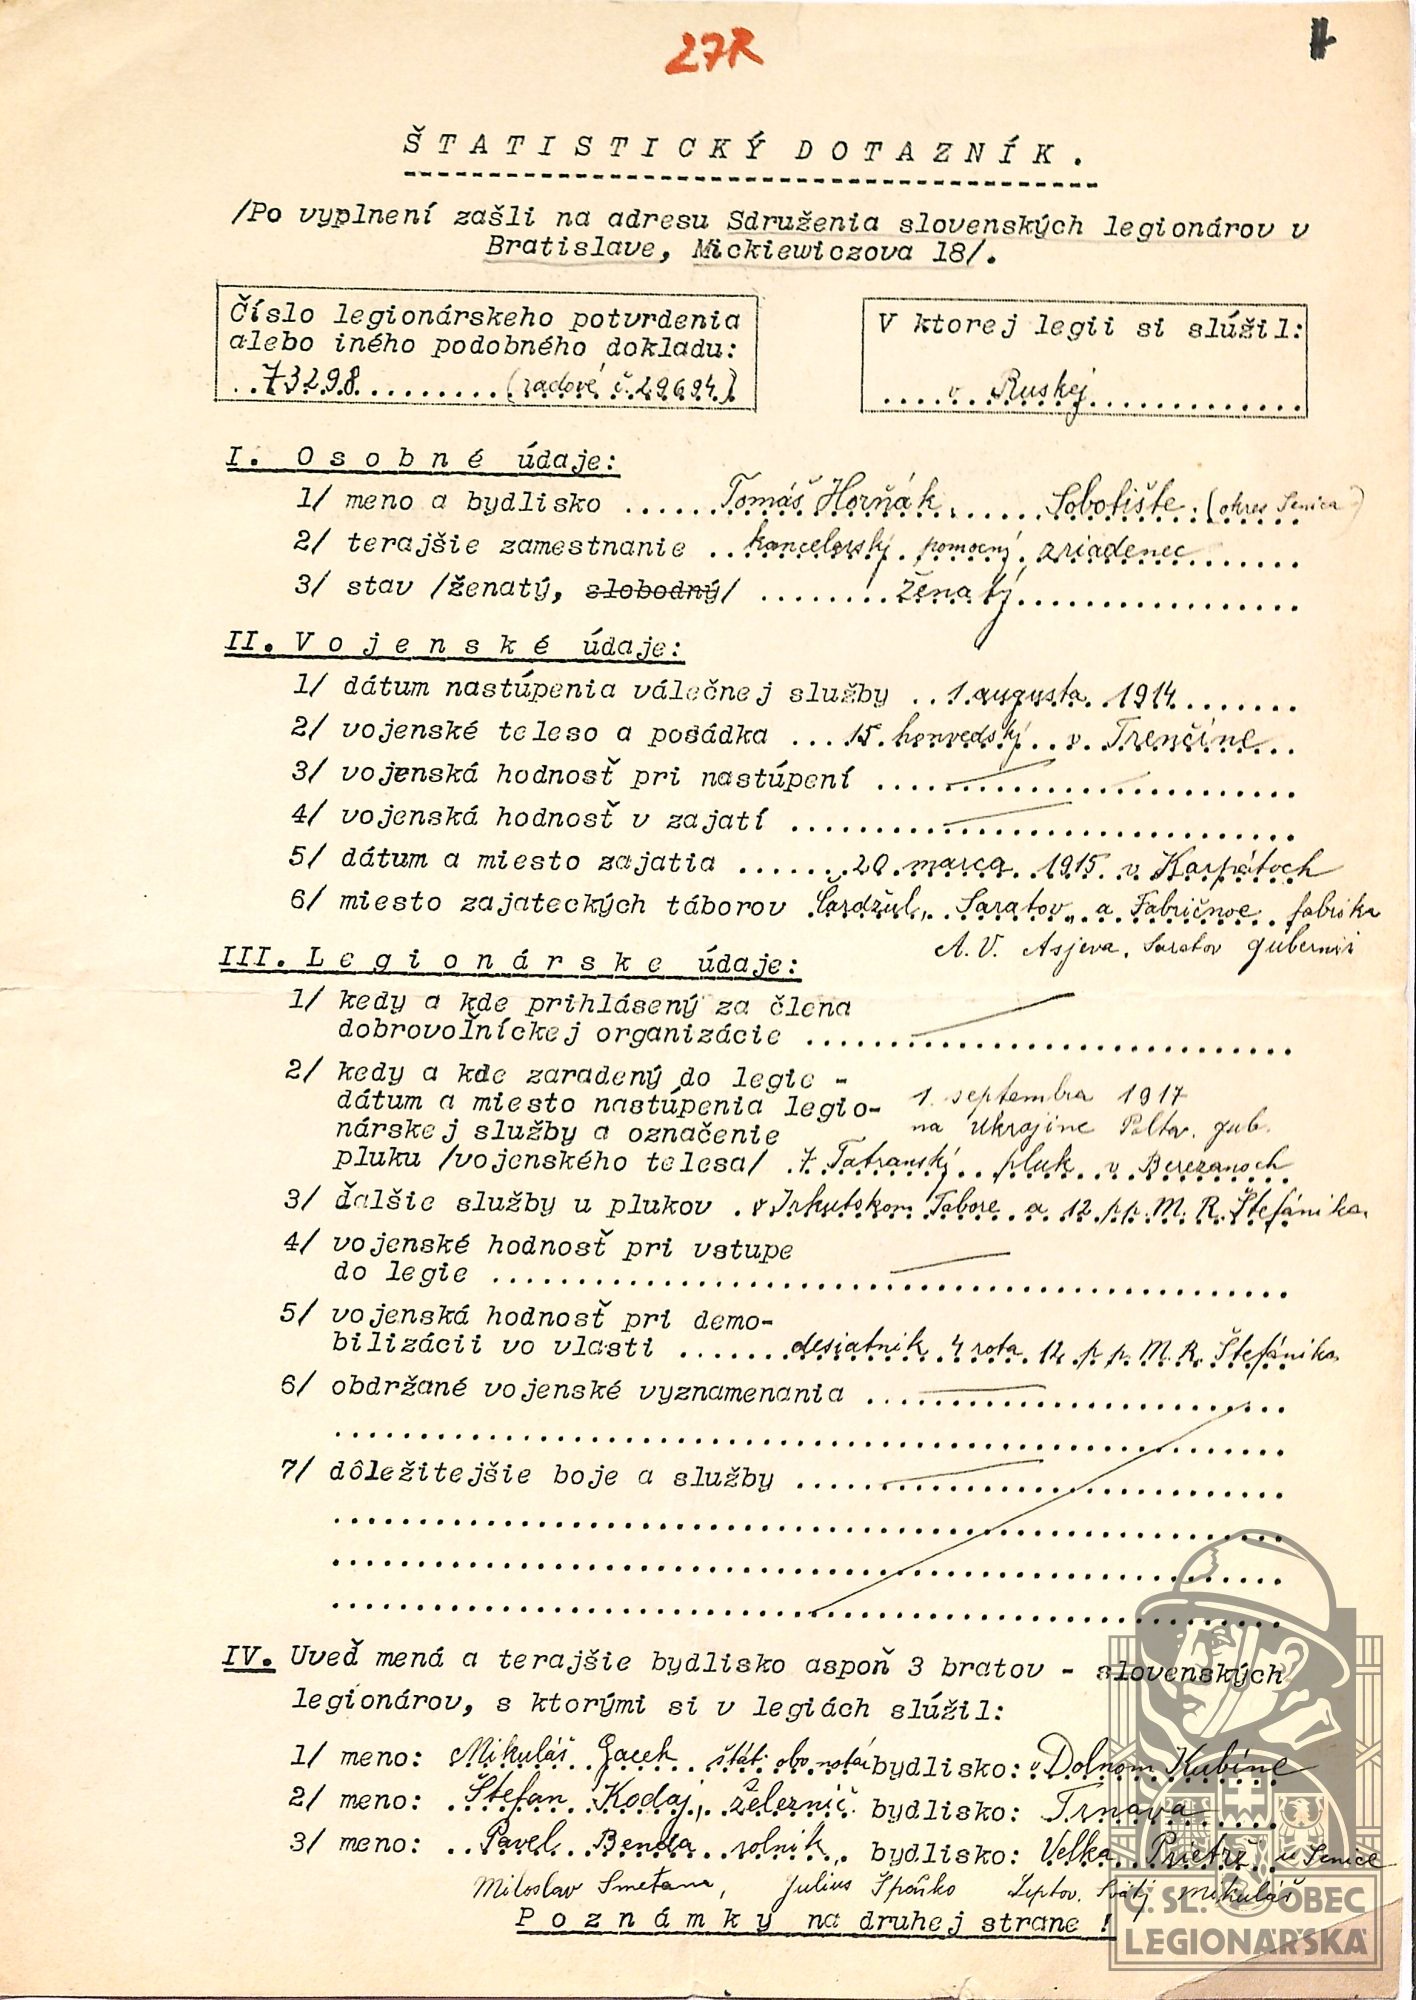 27R
ŠTATISTICKÝ DOTAZNÍK.
/Po vyplnení zašli na adresu Sdruženia slovenských legionárov v
Bratislave, Mickiewiczova 18/.
Číslo legionárskeho potvrdenia
alebo iného podobného dokladu:
73298 (radové č. 29694)
V ktorej legii si slúžil:
v Ruskej
I. Osobné údaje:
1/ meno a bydlisko Tomáš Horňák, Sobotište (okres Senica)
2/ terajšie zamestnanie kancelarský pomocný zriadenec
3/ stav /ženatý, slobodný/ ženatý
II. Vojenské údaje:
1/ dátum nastúpenia válečnej služby 1. augusta 1914
2/ vojenské teleso a posádka 15. honvedský v Trenčíne
3/ vojenská hodnosť pri nastúpení
4/ vojenská hodnosť v zajatí
5/ dátum a miesto zajatia 20 marca 1915 v Karpátoch
6/ miesto zajateckých táborov Čardžul, Saratov, a Fabričnoe fabrika
A. V. Asjeva, Saratov gubernii
III. Legionárske údaje:
1/ kedy a kde prihlásený za člena
dobrovoľníckej organizácie
2/ kedy a kde zaradený do legie -
dátum a miesto nastúpenia legio- 1. septembra 1917
nárskej služby a označenie na Ukrajine Poltav. gub.
pluku /vojenského telesa/ 7 Tatranský pluk v Berezanoch
3/ ďalšie služby u plukov v Irkutskom Tabore a 12. p. p. M. R. Štefánika
4/ vojenské hodnosť pri vstupe
do legie
5/ vojenská hodnosť pri demo-
bilizácii vo vlasti desiatnik 4 rota 12. p. p. M. R. Štefánika
6/ obdržané vojenské vyznamenania
7/ dôležitejšie boje a služby
IV. Uveď mená a terajšie bydlisko aspoň 3 bratov - slovenských
legionárov, s ktorými si v legiách slúžil:
1/ meno: Mikuláš Gacek štát. bydlisko: v Dolnom Kubíne
2/ meno: Štefan Kodaj, železnič. bydlisko: Trnava
3/ meno: Pavel Benda rolník, bydlisko: Veľka Prietrž u Senice
Miloslav Smetana, Julius Liptov. Svätý Mikuláš
Poznámky na druhej strane!
Č. SL. OBEC
LEGIONÁŘSKÁ